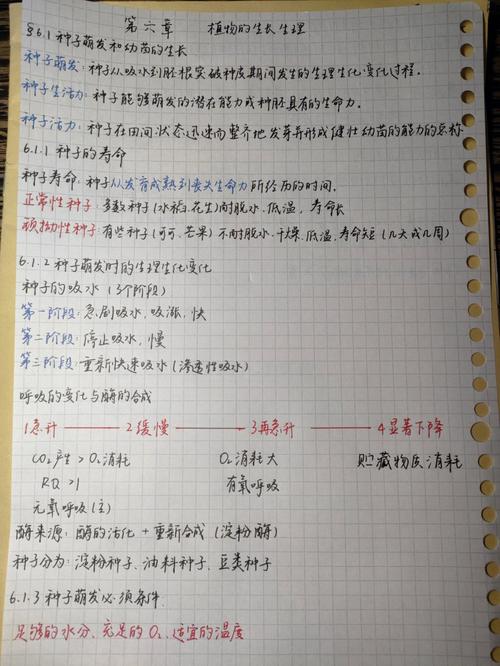 第六章 植物的生长生理
§6.1 种子萌发和幼苗的生长
种子萌发: 种子从吸水到胚根突破种皮期间发生的生理生化变化过程.
种子生活力: 种子能够萌发的潜在能力或种胚具有的生命力.
种子活力: 种子在田间状态迅速而整齐地发芽并形成健壮幼苗的能力的总称
6.1.1 种子的寿命
种子寿命: 种子从发育成熟到丧失生命力所经历的时间.
正常性种子: 多数种子(水稻.花生)耐脱水.低温, 寿命长
顽拗性种子: 有些种子(可可、芒果) 不耐脱水.干燥、低温, 寿命短(几天或几周)
6.1.2 种子萌发时的生理生化变化
种子的吸水 (3个阶段)
第一阶段: 急剧吸水, 吸涨, 快
第二阶段: 停止吸水, 慢
第三阶段: 重新快速吸水 (渗透性吸水)
呼吸的变化与酶的合成
1急升 2缓慢 3再急升 4显著下降
CO₂产生 > O₂消耗 O₂消耗大 贮藏物质消耗
RQ >1 有氧呼吸
无氧呼吸(主)
酶来源: 酶的活化 + 重新合成 (淀粉酶)
种子分为: 淀粉种子、油料种子、豆类种子
6.1.3 种子萌发必须条件
足够的水分、充足的O₂、适宜的温度